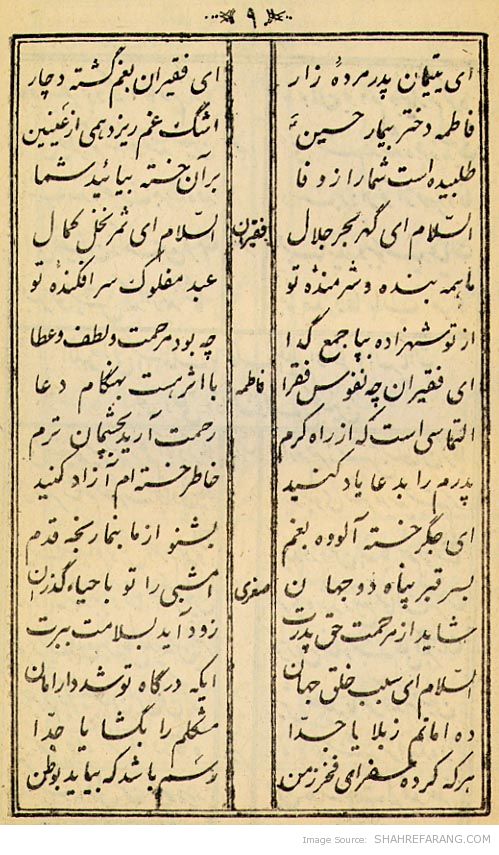 ۹
ای یتیمان پدر مردهٔ زار ای فقیران بغم گشته دچار
فاطمه دختر بیمار حسینؑ اشگ غم ریزد همی از عینین
طلبیده است شما را ز وفا بر آن خسته بیائید شما
السّلام ای گهر بحر جلال فقیران السّلام ای ثمر نخل کمال
ما همه بنده و شرمندهٔ تو عبد مفلوک سر افکندهٔ تو
از تو شهزاده بپا جمع گدا چه بود مرحمت و لطف و عطا
ای فقیران چه نفوس فقرا فاطمه با اثر هست بهنگام دعا
التماسی است که از راه کرم رحمت آرید بچشمان ترم
پدرم را بدعا یاد کنید خاطر خسته ام آزاد کنید
ای جگر خسته آلوده بغم بشنو از ما بنما رنجه قدم
بسر قبر پناه دو جهان صغری امشبی را تو با حیاء گذران
شاید از مرحمت حق پدرت زود آید بسلامت ببرت
السّلام ای سبب خلق جهان ایکه درگاه تو شد دار امان
ده امانم ز بلا یا جدّا مشکلم را بگشا یا جدّا
هر که کرده سفر ای فخر زمن رسم باشد که بیاید بوطن
Image Source: SHAHREFARANG.COM